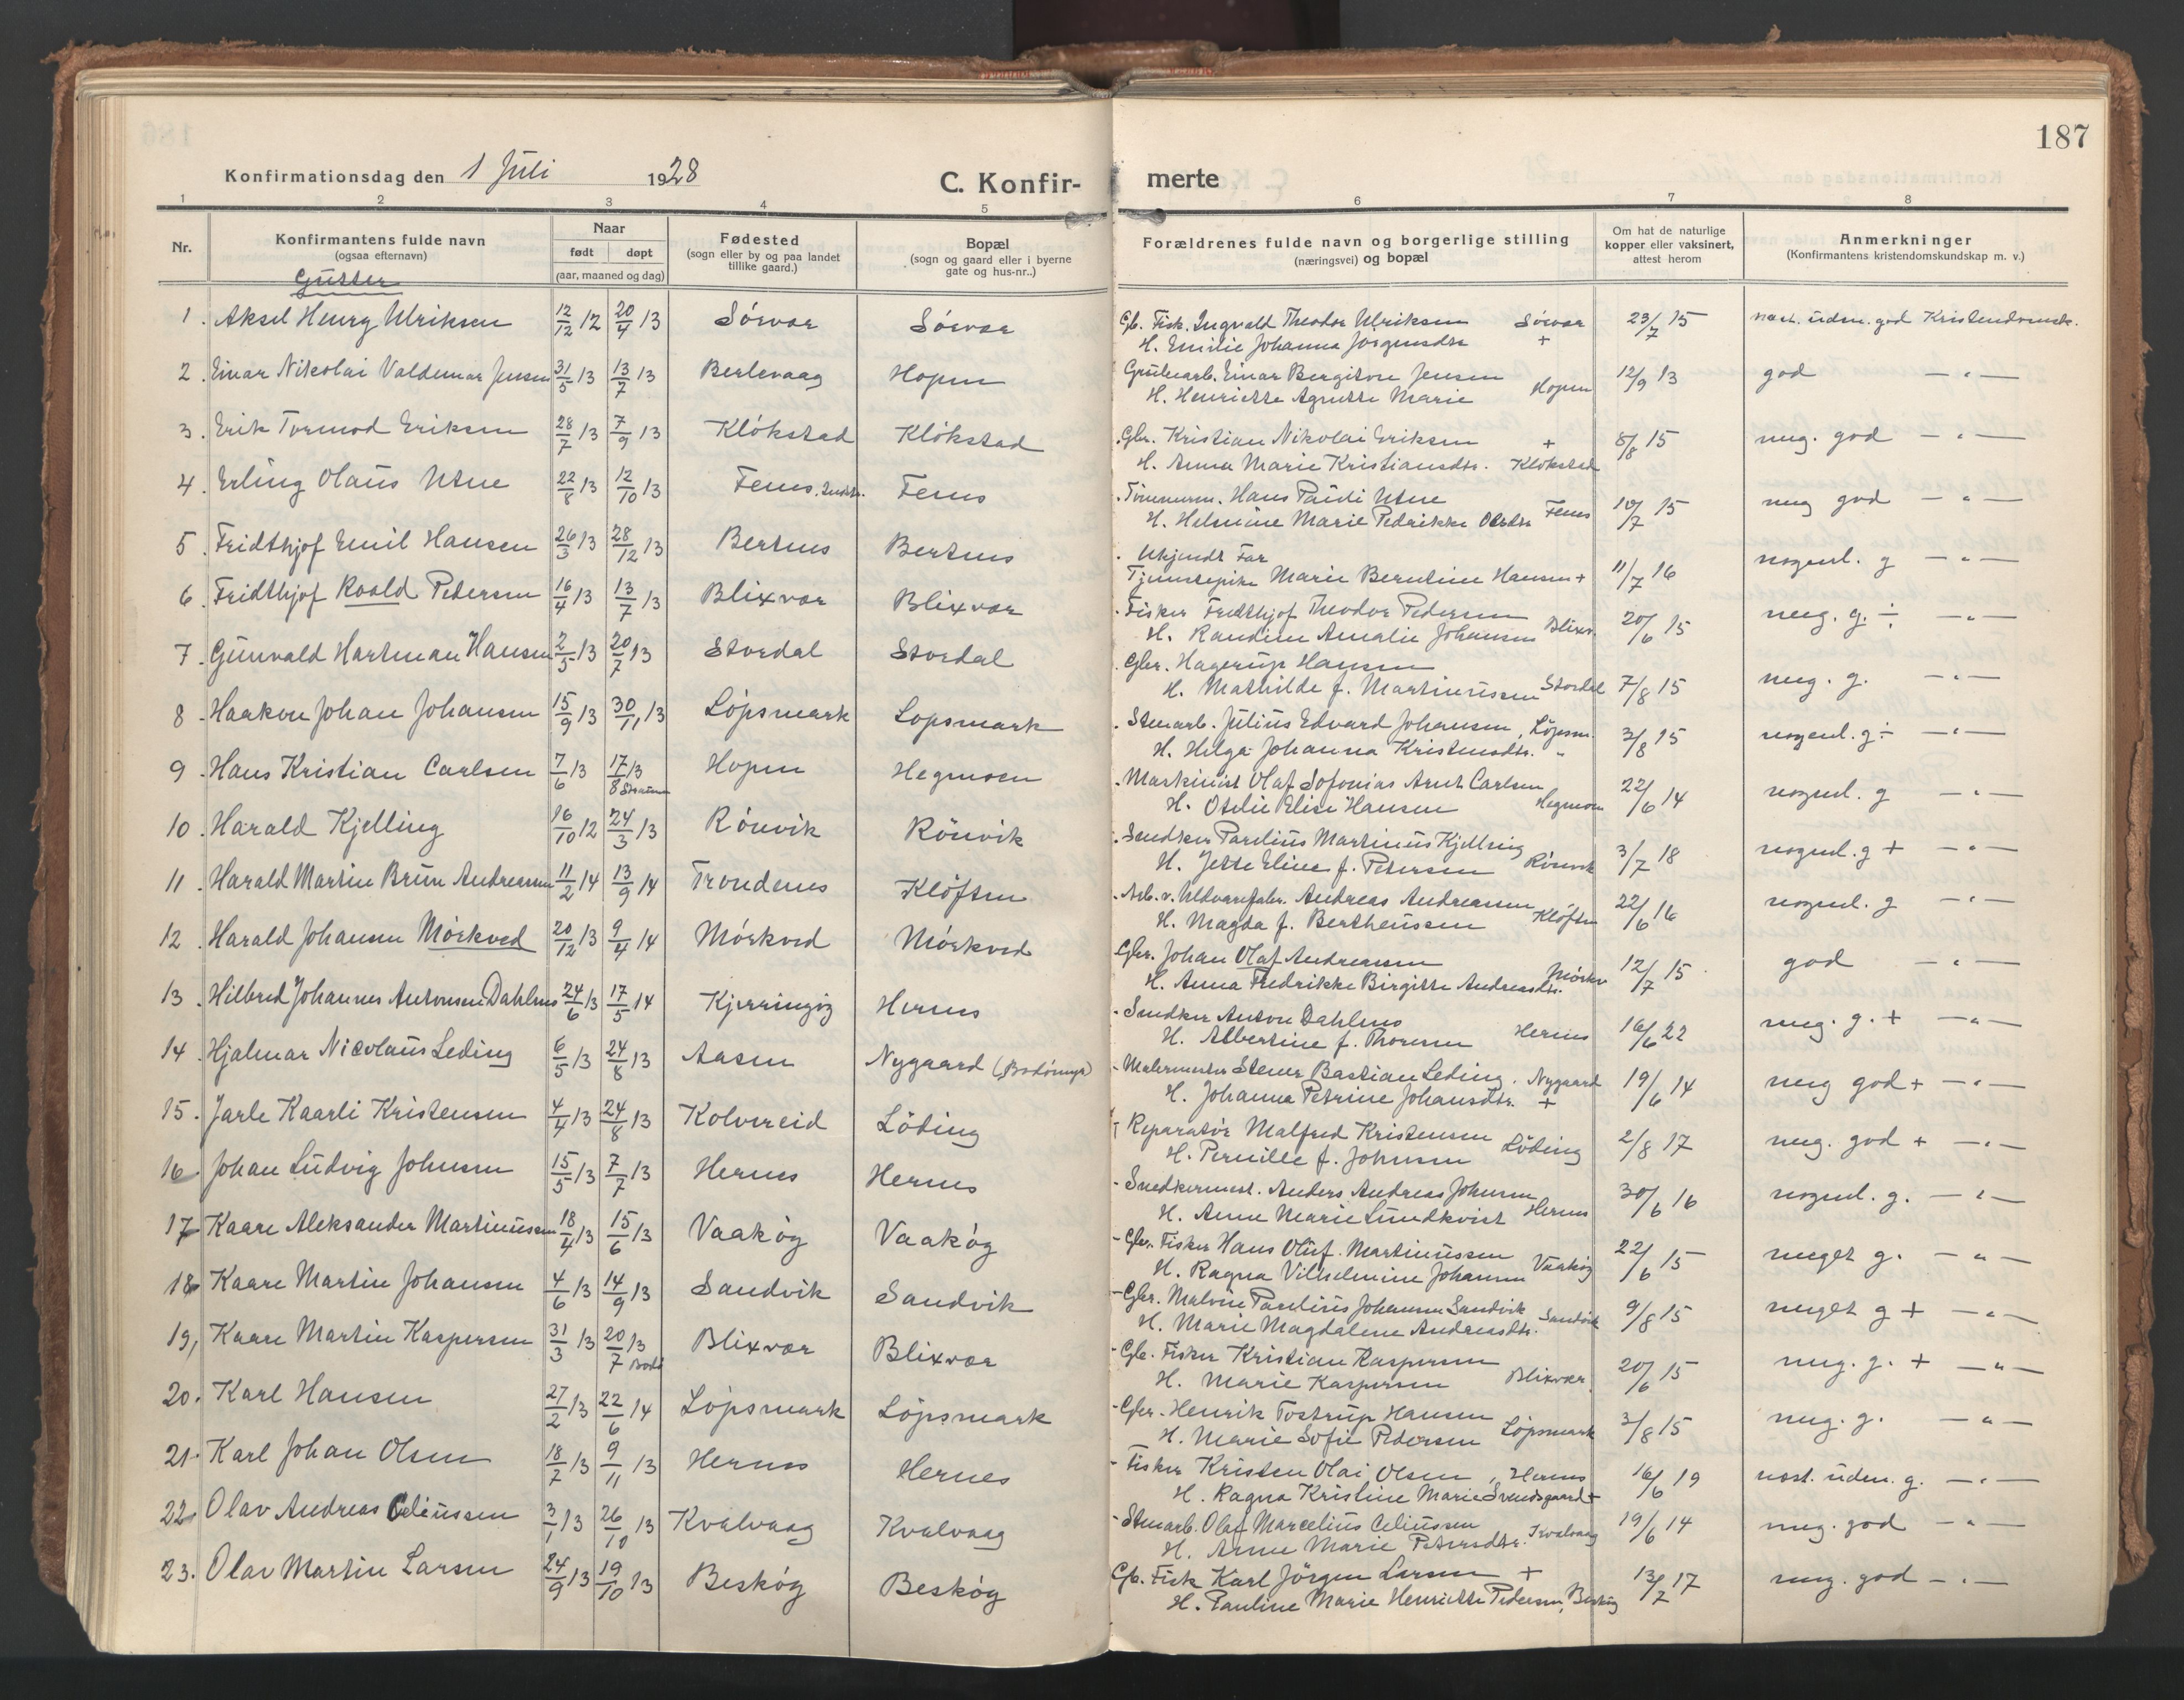 187
Konfirmationsdag den 1 Juli 1928
C. Konfir- merte
1 2 3 4 5 6 7 8
Nr.
Konfirmantens fulde navn
(ogsaa efternavn)
Naar
født døpt
(aar, maaned og dag)
Fødested
(sogn eller by og paa landet
tillike gaard.)
Bopæl
(sogn og gaard eller i byerne
gate og hus-nr..)
Forældrenes fulde navn og borgerlige stilling
(næringsvei) og bopæl
Om hat de naturlige
kopper eller vaksinert,
attest herom
Anmerkninger
(Konfirmantens kristendomskundskap m. v.)
Gutter
1. Aksel Henry Ulriksen 12/12 12 20/4 13 Sórvær Sórvær Gb. Fisk. Ingvald Theodor Ulriksen Sórvær 23/7 15 mest. udm. god Kristendomsk.
H. Emilie Johanna Jörgensdtr +
2. Einar Nikolai Valdemar Jensen 31/5 13 13/7 13 Berlevaag Hopen Grubearb. Einar Bergiton Jensen 12/9 13 god — " —
H. Henriette Agnette Marie Hopen
3. Erik Tormod Eriksen 28/7 13 7/9 13 Klókstad Klókstad Gbr. Kristian Nikolai Eriksen + 8/8 15 meg. god — " —
H. Anna Marie Kristiansdtr. Klókstad
4. Erling Olaus Utne 22/8 13 12/10 13 Fenes. Fenes Tömmerm. Hans Paidi Utne 10/7 15 meg god — " —
H. Helmine Marie Pedrikke Olsdtr Fenes
5. Fridthjof Emil Hansen 26/3 13 28/12 13 Bertnes Bertnes Ukjendt Far 11/7 16 nogenl. g — " —
Tjenestepike Marie Berntine Hansen +
6. Fridthjof Roald Pedersen 16/4 13 13/7 13 Blixvær Blixvær Fisker Fridthjof Theodor Pedersen 20/6 15 meg. g. ÷ — " —
H. Randine Amalie Johansen Blixv.
7. Gunvald Hartman Hansen 2/5 13 20/7 13 Stordal Stordal Gbr. Hagerup Hansen 7/8 15 meg. g. — " —
H. Mathilde f. Martinussen Stordal
8. Haakon Johan Johansen 15/9 13 30/11 13 Löpsmark Löpsmark Stenarb. Julius Edvard Johansen, Löpsm. 3/8 15 nogenl. g ÷ — " —
H. Helga Johanna Kristensdtr. "
9. Hans Kristian Carlsen 7/6 13 17/8 13 Hopen Hegmoen Maskinist Olaf Sofonias Arnt Carlsen 22/6 14 nogenl. g — " —
H. Otelie Elise Hansen Hegmoen
10. Harald Kjelling 16/10 12 24/3 13 Rönvik Rönvik Snedker Parelius Martinus Kjelling 3/7 18 nogenl. g + — " —
H. Jette Eline f. Petersen Rönvik
11. Harald Martin Brun Andreassen 11/2 14 13/9 14 Trondenes Klöften Arb. v. Uldvarefabr. Andreas Andreassen 22/6 16 nogenl. g — " —
H. Magda f. Bertheussen Klöften
12. Harald Johansen Mörkved 20/12 13 9/4 14 Mörkved Mörkved Gbr. Johan Olaf Andreassen 12/7 15 god — " —
H. Anna Fredrikke Birgitte Andreasdtr. Mörkv
13. Hilbred Johannes Antonsen Dahlnes 24/6 13 17/5 14 Kjerringöy Hernes Snedker Anton Dahlnes 16/6 22 meg. g. + — " —
H. Albertine f. Thoresen Hernes
14. Hjalmar Nicolaus Leding 6/5 13 24/8 13 Aasen Nygaard (Bodömyr) Malermester Stener Bastian Leding. Nygaard 19/6 14 meg god + — " —
H. Johanna Petrine Johansdtr. +
15. Jarle Kaarli Kristensen 4/4 13 24/8 13 Kolvereid Löding Reparatör Malfred Kristensen 2/8 17 meg. god + — " —
H. Pernille f. Johnsen Löding
16. Johan Ludvig Johnsen 15/5 13 7/7 13 Hernes Hernes Snedkermest. Anders Andreas Johnsen 30/6 16 nogenl. g. — " —
H. Anne Marie Lundkvist Hernes
17. Kaare Aleksander Martinussen 18/4 13 15/6 13 Vaaköy Vaaköy Gbr. Fisker Hans Oluf Martinussen 22/6 15 meget g. — " —
H. Ragna Vilhelmine Johansen Vaaköy
18. Kaare Martin Johansen 4/6 13 14/9 13 Sandvik Sandvik Gbr. Malvin Parelius Johansen Sandvik 9/8 15 meget g + — " —
H. Marie Magdalene Andreasdtr. Sandvik
19. Kaare Martin Kaspersen 31/3 13 20/7 13 Bodö Blixvær Blixvær Gbr. Fisker Kristian Kaspersen 20/6 15 meg. g. + — " —
H. Marie Kaspersen Blixvær.
20. Karl Hansen 27/2 13 22/6 14 Löpsmark Löpsmark Gbr. Henrik Tostrup Hansen 3/8 15 meg. g. — " —
H. Marie Sofie Pedersen Löpsmark
21. Karl Johan Olsen 18/7 13 9/11 13 Hernes Hernes Fisker Kristen Olai Olsen, Hernes 16/6 19 mest. udm. g. — " —
H. Ragna Kristine Marie Svendsgaard +
22. Olav Andreas Celiussen 3/1 13 26/10 13 Kvalvaag Kvalvaag Stenarb. Olaf Marcelius Celiussen 19/6 14 meg. god — " —
H. Anne Marie Petersdtr. Kvalvaag
23. Olav Martin Larsen 24/9 13 19/10 13 Besköy Besköy Gb. Fisk Karl Jörgen Larsen + 13/7 17 meg. god — " —
H. Pauline Marie Henriette Pedersen, Besköy